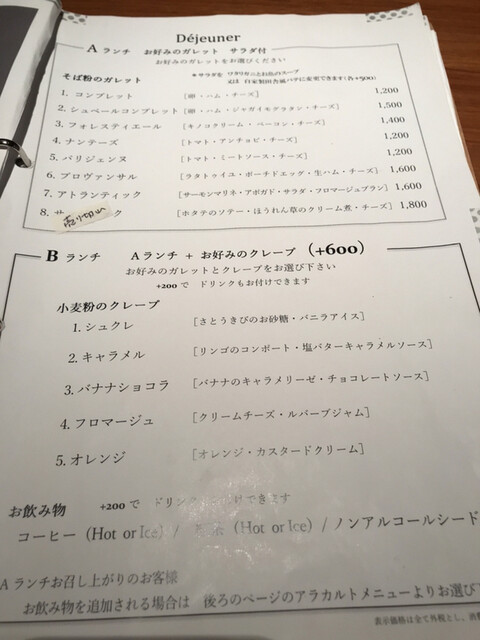 Déjeuner
A ランチ お好みのガレット サラダ付
お好みのガレットをお選びください
そば粉のガレット
＊サラダを ワタリガニとお魚のスープ
又は 自家製田舎風パテに変更できます(各+500)
1. コンプレット [卵・ハム・チーズ] 1,200
2. シュペールコンプレット [卵・ハム・ジャガイモグラタン・チーズ] 1,500
3. フォレスティエール [キノコクリーム・ベーコン・チーズ] 1,400
4. ナンテーズ [トマト・アンチョビ・チーズ] 1,200
5. パリジェンヌ [トマト・ミートソース・チーズ] 1,200
6. プロヴァンサル [ラタトゥイユ・ポーチドエッグ・生ハム・チーズ] 1,600
7. アトランティック [サーモンマリネ・アボガド・サラダ・フロマージュブラン] 1,600
8. サ 売り切れ ク [ホタテのソテー・ほうれん草のクリーム煮・チーズ] 1,800
B ランチ Aランチ + お好みのクレープ (+600)
お好みのガレットとクレープをお選び下さい
+200 で ドリンクもお付けできます
小麦粉のクレープ
1. シュクレ [さとうきびのお砂糖・バニラアイス]
2. キャラメル [リンゴのコンポート・塩バターキャラメルソース]
3. バナナショコラ [バナナのキャラメリーゼ・チョコレートソース]
4. フロマージュ [クリームチーズ・ルバーブジャム]
5. オレンジ [オレンジ・カスタードクリーム]
お飲み物 +200 で ドリン けできます
コーヒー (Hot or Ice) / 茶 (Hot or Ice) / ノンアルコールシード
A ランチお召し上がりのお客様
お飲み物を追加される場合は 後ろのページのアラカルトメニューよりお選び下
表示価格は全て外税とし、消費